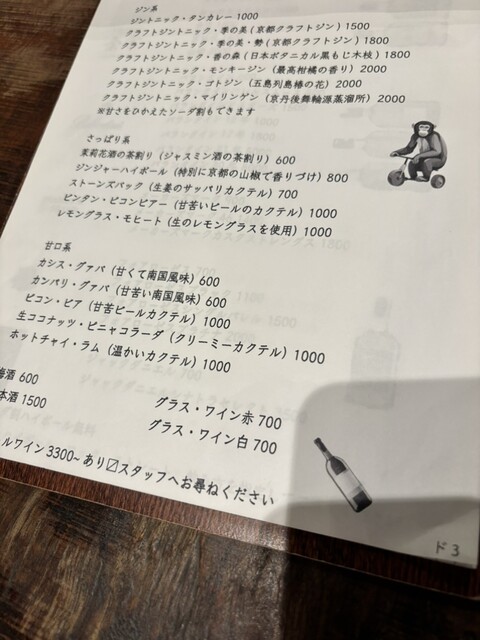 ジン系
ジントニック・タンカレー 1000
クラフトジントニック・季の美 (京都クラフトジン) 1500
クラフトジントニック・季の美・勢 (京都クラフトジン) 1800
クラフトジントニック・香の森 (日本ボタニカル黒もじ木枝) 1800
クラフトジントニック・モンキージン (最高柑橘の香り) 2000
クラフトジントニック・ゴトジン (五島列島椿の花) 2000
クラフトジントニック・マイリンゲン (京丹後舞輪源蒸溜所) 2000
※甘さをひかえたソーダ割もできます
さっぱり系
茉莉花酒の茶割り (ジャスミン酒の茶割り) 600
ジンジャーハイボール (特別に京都の山椒で香りづけ) 800
ストーンズバック (生姜のサッパリカクテル) 700
ビンタン・ピコンビアー (甘苦いビールのカクテル) 1000
レモングラス・モヒート (生のレモングラスを使用) 1000
甘口系
カシス・グァバ (甘くて南国風味) 600
カンパリ・グァバ (甘苦い南国風味) 600
ピコン・ビア (甘苦ビールカクテル) 1000
生ココナッツ・ピニャコラーダ (クリーミーカクテル) 1000
ホットチャイ・ラム (温かいカクテル) 1000
梅酒 600
本酒 1500
グラス・ワイン赤 700
グラス・ワイン白 700
ルワイン 3300~ あり〼スタッフへお尋ねください
ド 3